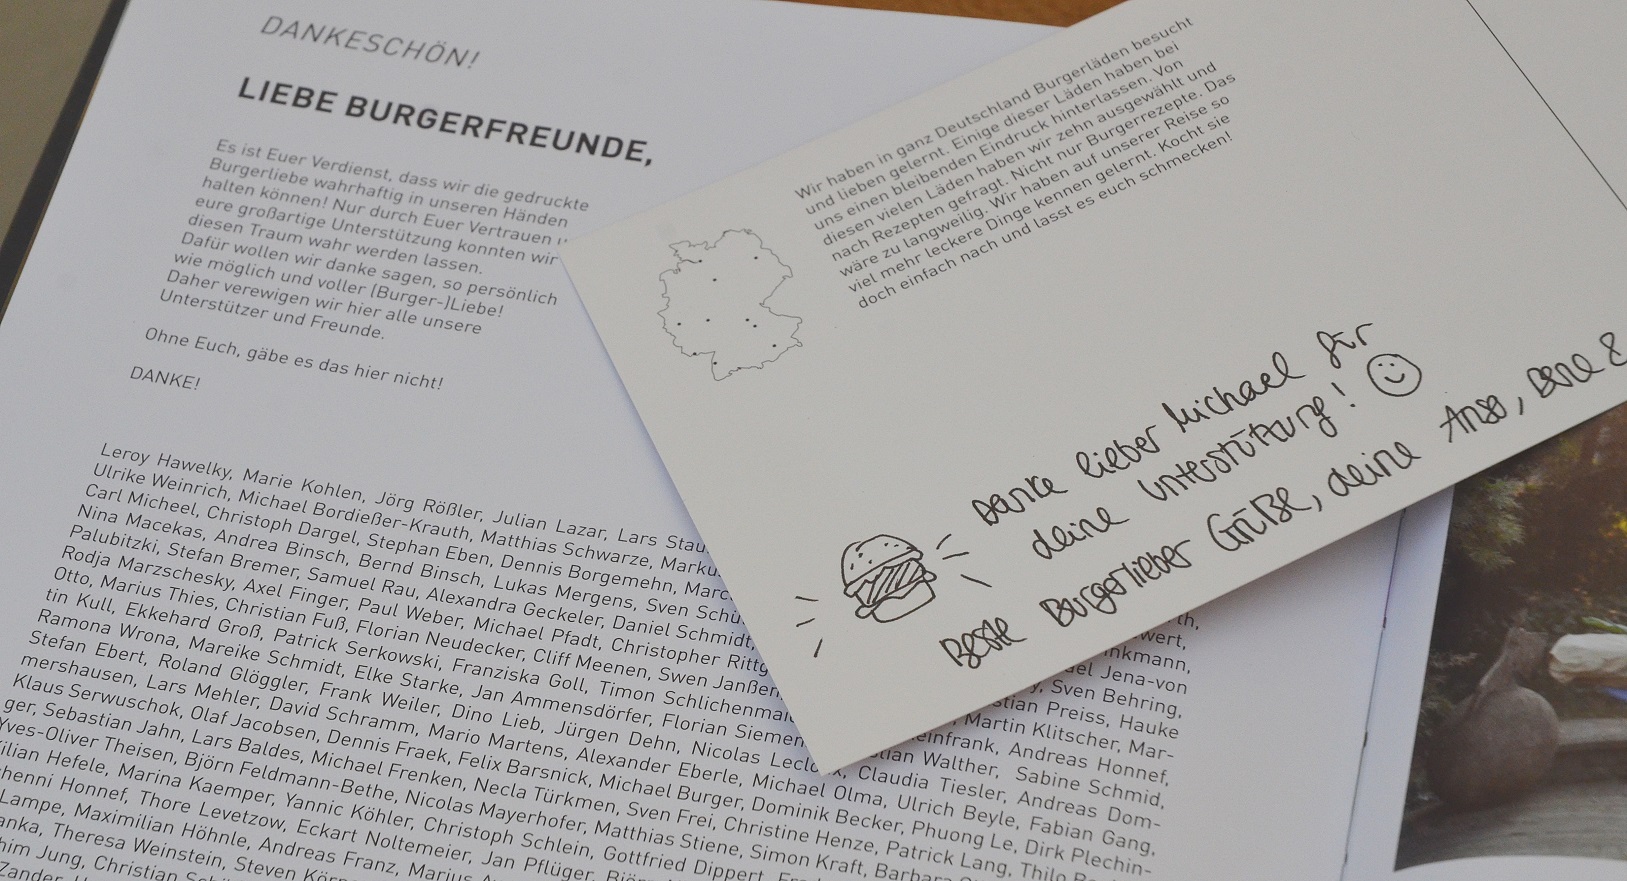 DANKESCHÖN!
LIEBE BURGERFREUNDE,
Es ist Euer Verdienst, dass wir die gedruckte
Burgerliebe wahrhaftig in unseren Händen
halten können! Nur durch Euer Vertrauen
eure großartige Unterstützung konnten wir
diesen Traum wahr werden lassen.
Dafür wollen wir danke sagen, so persönlich
wie möglich und voller (Burger-)Liebe!
Daher verewigen wir hier alle unsere
Unterstützer und Freunde.
Ohne Euch, gäbe es das hier nicht!
DANKE!
Leroy Hawelky, Marie Kohlen, Jörg Rößler, Julian Lazar, Lars
Ulrike Weinrich, Michael Bordießer-Krauth, Matthias Schwarze,
Carl Micheel, Christoph Dargel, Stephan Eben, Dennis Borgemehn,
Nina Macekas, Andrea Binsch, Bernd Binsch, Lukas Mergens, Sven
Palubitzki, Stefan Bremer, Samuel Rau, Alexandra Geckeler, Daniel Schmidt,
Rodja Marzschesky, Axel Finger, Paul Weber, Michael Pfadt, Christopher
Otto, Marius Thies, Christian Fuß, Florian Neudecker, Cliff Meenen, Swen Janßen,
tin Kull, Ekkehard Groß, Patrick Serkowski, Franziska Goll, Timon
Ramona Wrona, Mareike Schmidt, Elke Starke, Jan Ammensdörfer, Florian
Stefan Ebert, Roland Glöggler, Frank Weiler, Dino Lieb, Jürgen Dehn, Nicolas
mershausen, Lars Mehler, David Schramm, Mario Martens, Alexander Eberle, Michael Olma, Ulrich Beyle, Fabian Gang,
Klaus Serwuschok, Olaf Jacobsen, Dennis Fraek, Felix Barsnick, Michael Burger, Dominik Becker, Phuong Le, Dirk Plechin-
ger, Sebastian Jahn, Lars Baldes, Michael Frenken, Necla Türkmen, Sven Frei, Christine Henze, Patrick Lang, Thilo
Yves-Oliver Theisen, Björn Feldmann-Bethe, Nicolas Mayerhofer, Matthias Stiene, Simon Kraft, Barbara
Hefele, Marina Kaemper, Yannic Köhler, Christoph Schlein, Gottfried Dippert,
Honnef, Thore Levetzow, Eckart Noltemeier, Jan Pflüger,
Lampe, Maximilian Höhnle, Andreas Franz, Marius
Theresa Weinstein, Steven
Jung, Christian
Zander,
Jena-von
Sven Behring,
Preiss, Hauke
Martin Klitscher, Mar-
Andreas Honnef,
Walther, Sabine Schmid,
Claudia Tiesler, Andreas Dom-
Wir haben in ganz Deutschland Burgerläden besucht
und lieben gelernt. Einige dieser Läden haben bei
uns einen bleibenden Eindruck hinterlassen. Von
diesen vielen Läden haben wir zehn ausgewählt und
nach Rezepten gefragt. Nicht nur Burgerrezepte. Das
wäre zu langweilig. Wir haben auf unserer Reise so
viel mehr leckere Dinge kennen gelernt. Kocht sie
doch einfach nach und lasst es euch schmecken!
Danke lieber Michael für
deine Unterstützung!
Beste Burgerlieber Grüße, deine